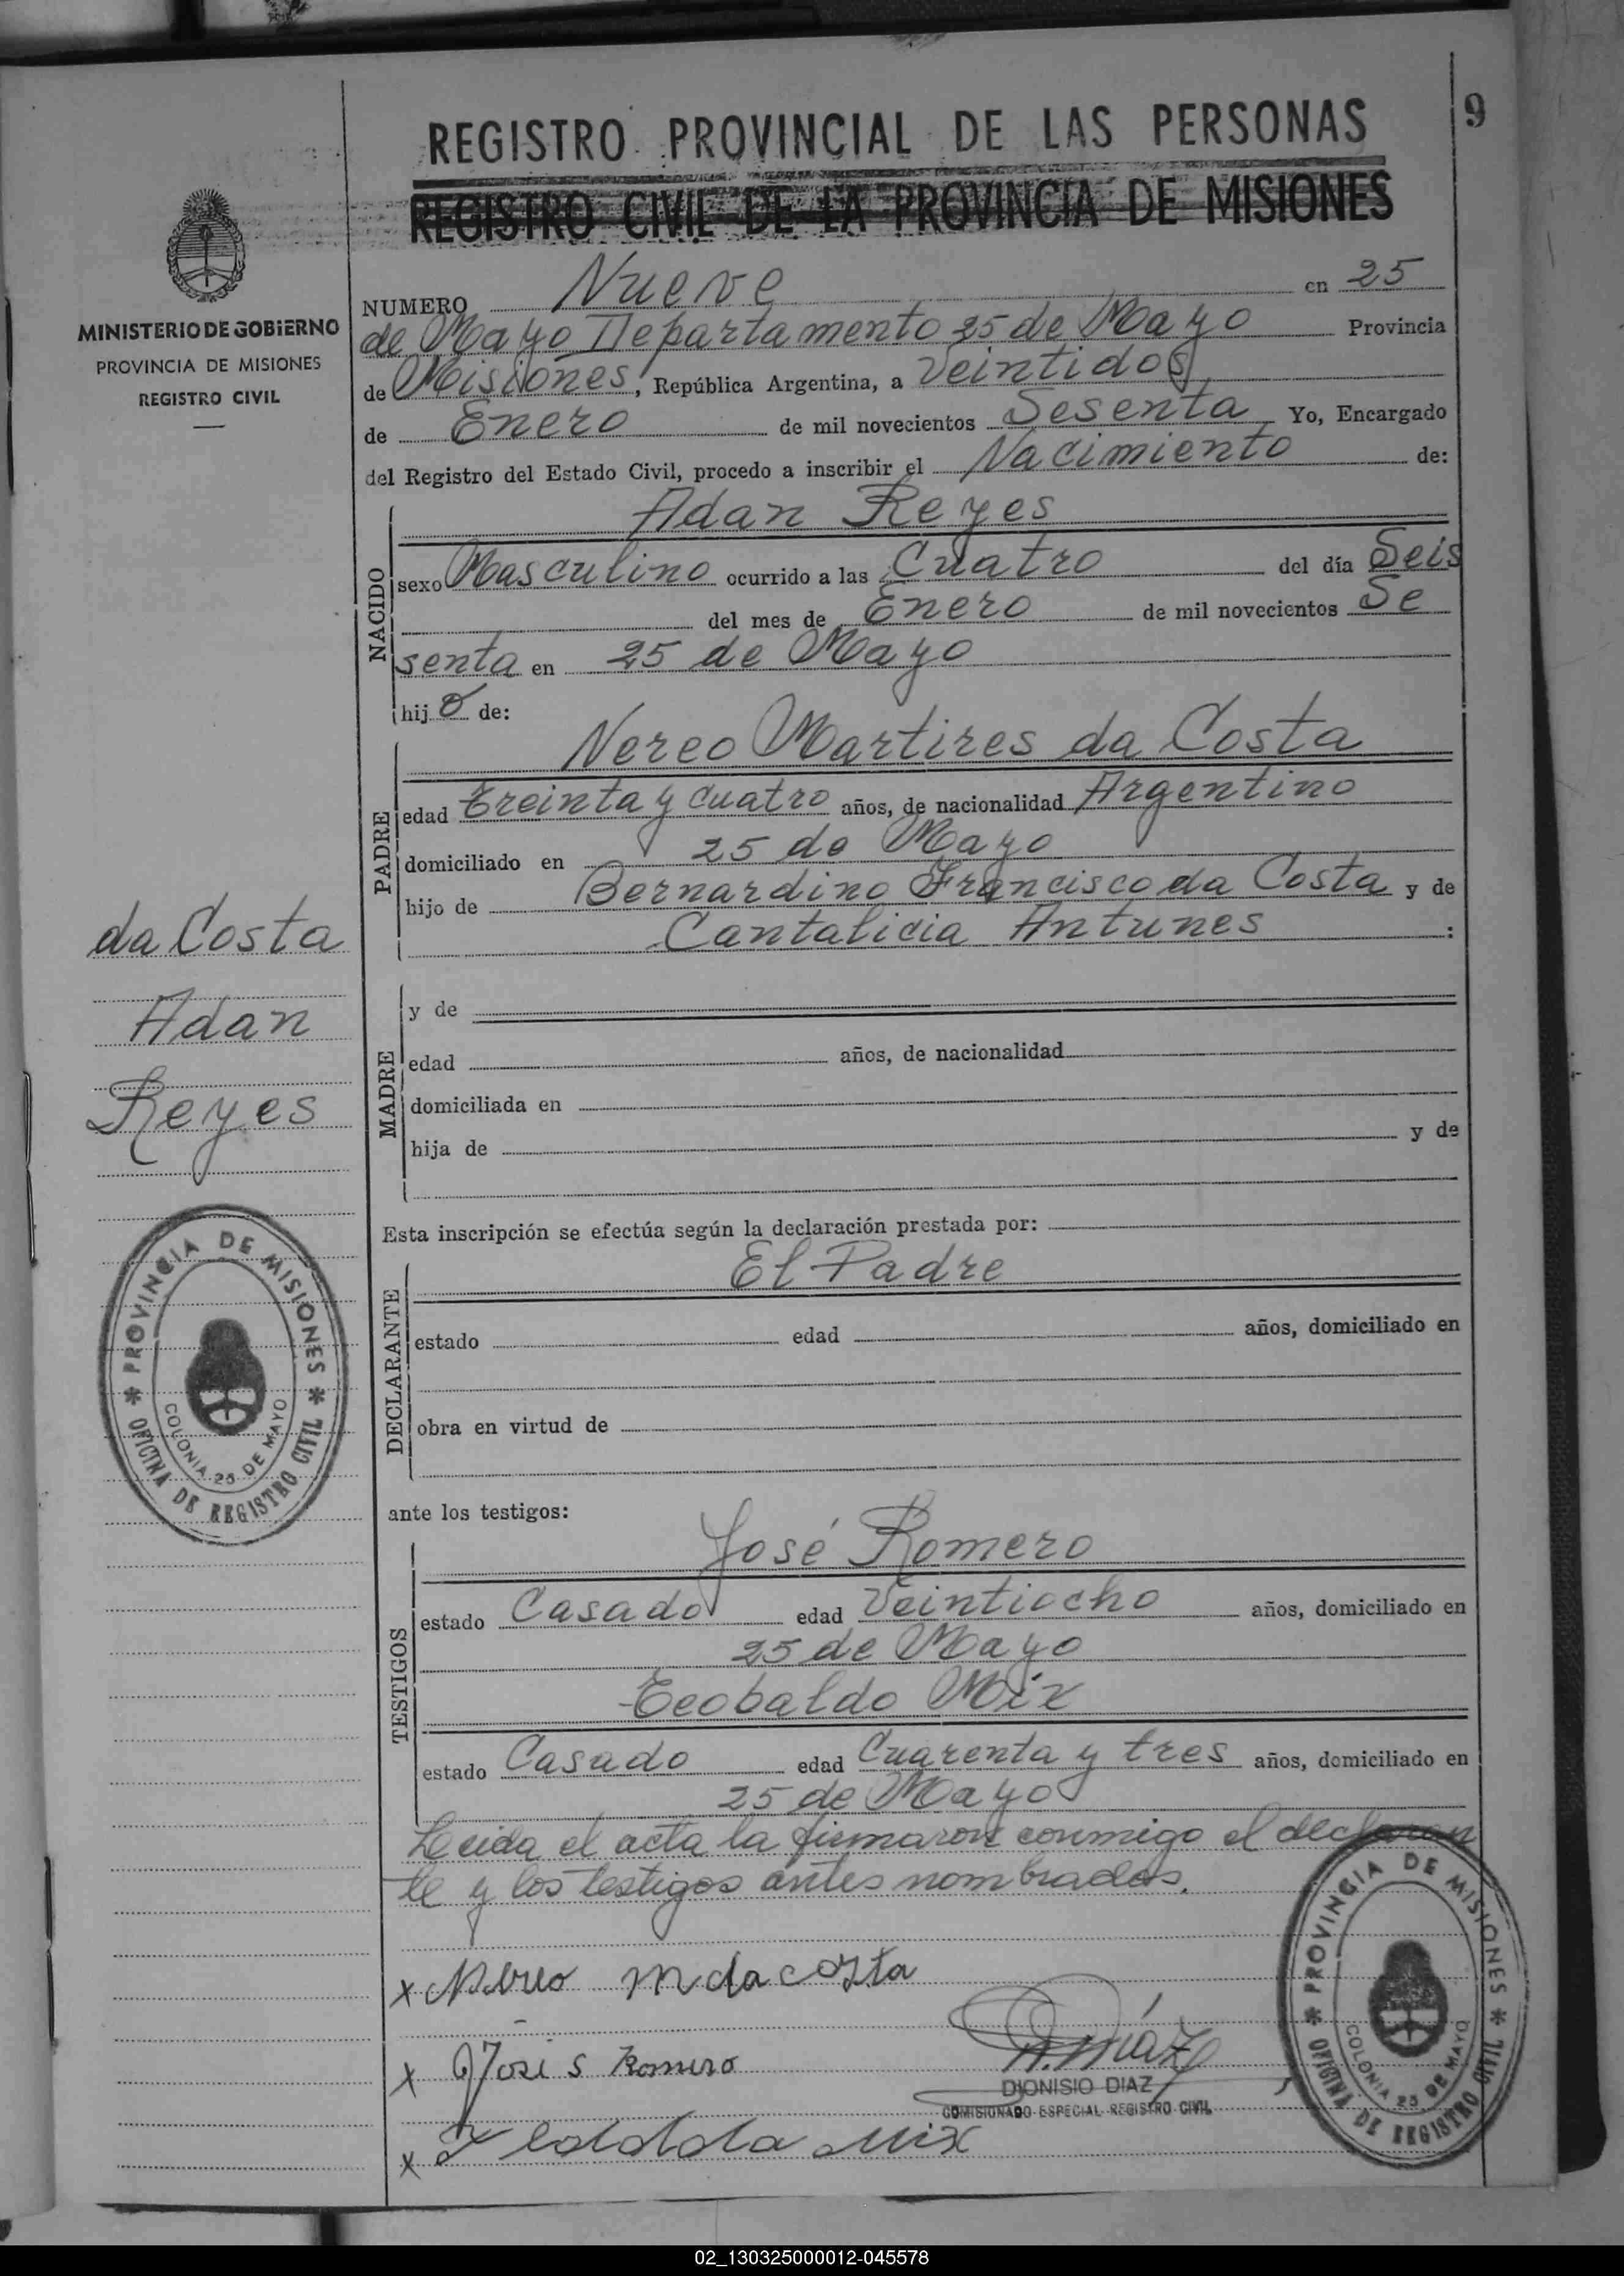 9
REGISTRO PROVINCIAL DE LAS PERSONAS
REGISTRO CIVIL DE LA PROVINCIA DE MISIONES
MINISTERIO DE GOBIERNO
PROVINCIA DE MISIONES
REGISTRO CIVIL
NUMERO Nueve en 25
de Mayo Departamento 25 de Mayo Provincia
de Misiones, República Argentina, a Veintidos
de Enero de mil novecientos Sesenta Yo, Encargado
del Registro del Estado Civil, procedo a inscribir el Nacimiento de:
NACIDO
Adan Reyes
sexo Masculino ocurrido a las Cuatro del día Seis
del mes de Enero de mil novecientos Se
senta en 25 de Mayo
hijo de:
PADRE
Nereo Martires da Costa
edad Treinta y cuatro años, de nacionalidad Argentino
domiciliado en 25 de Mayo
hijo de Bernardino Francisco da Costa y de
Cantalicia Antunes :
da Costa
Adan
Reyes
MADRE
y de
edad años, de nacionalidad
domiciliada en
hija de y de
Esta inscripción se efectúa según la declaración prestada por:
DECLARANTE
El Padre
estado edad años, domiciliado en
obra en virtud de
PROVINCIA DE MISIONES
OFICINA DE REGISTRO CIVIL
COLONIA 25 DE MAYO
ante los testigos:
TESTIGOS
José Romero
estado Casado edad Veintiocho años, domiciliado en
25 de Mayo
Teobaldo Mix
estado Casado edad Cuarenta y tres años, domiciliado en
25 de Mayo
Leida el acta la firmaron conmigo el declaran
te y los testigos antes nombrados.
x Nereo M da costa
x José S Romero
D. Díaz
DIONISIO DIAZ
COMISIONADO ESPECIAL REGISTRO CIVIL
x Mix
PROVINCIA DE MISIONES
OFICINA DE REGISTRO CIVIL
COLONIA 25 DE MAYO
02_130325000012-045578